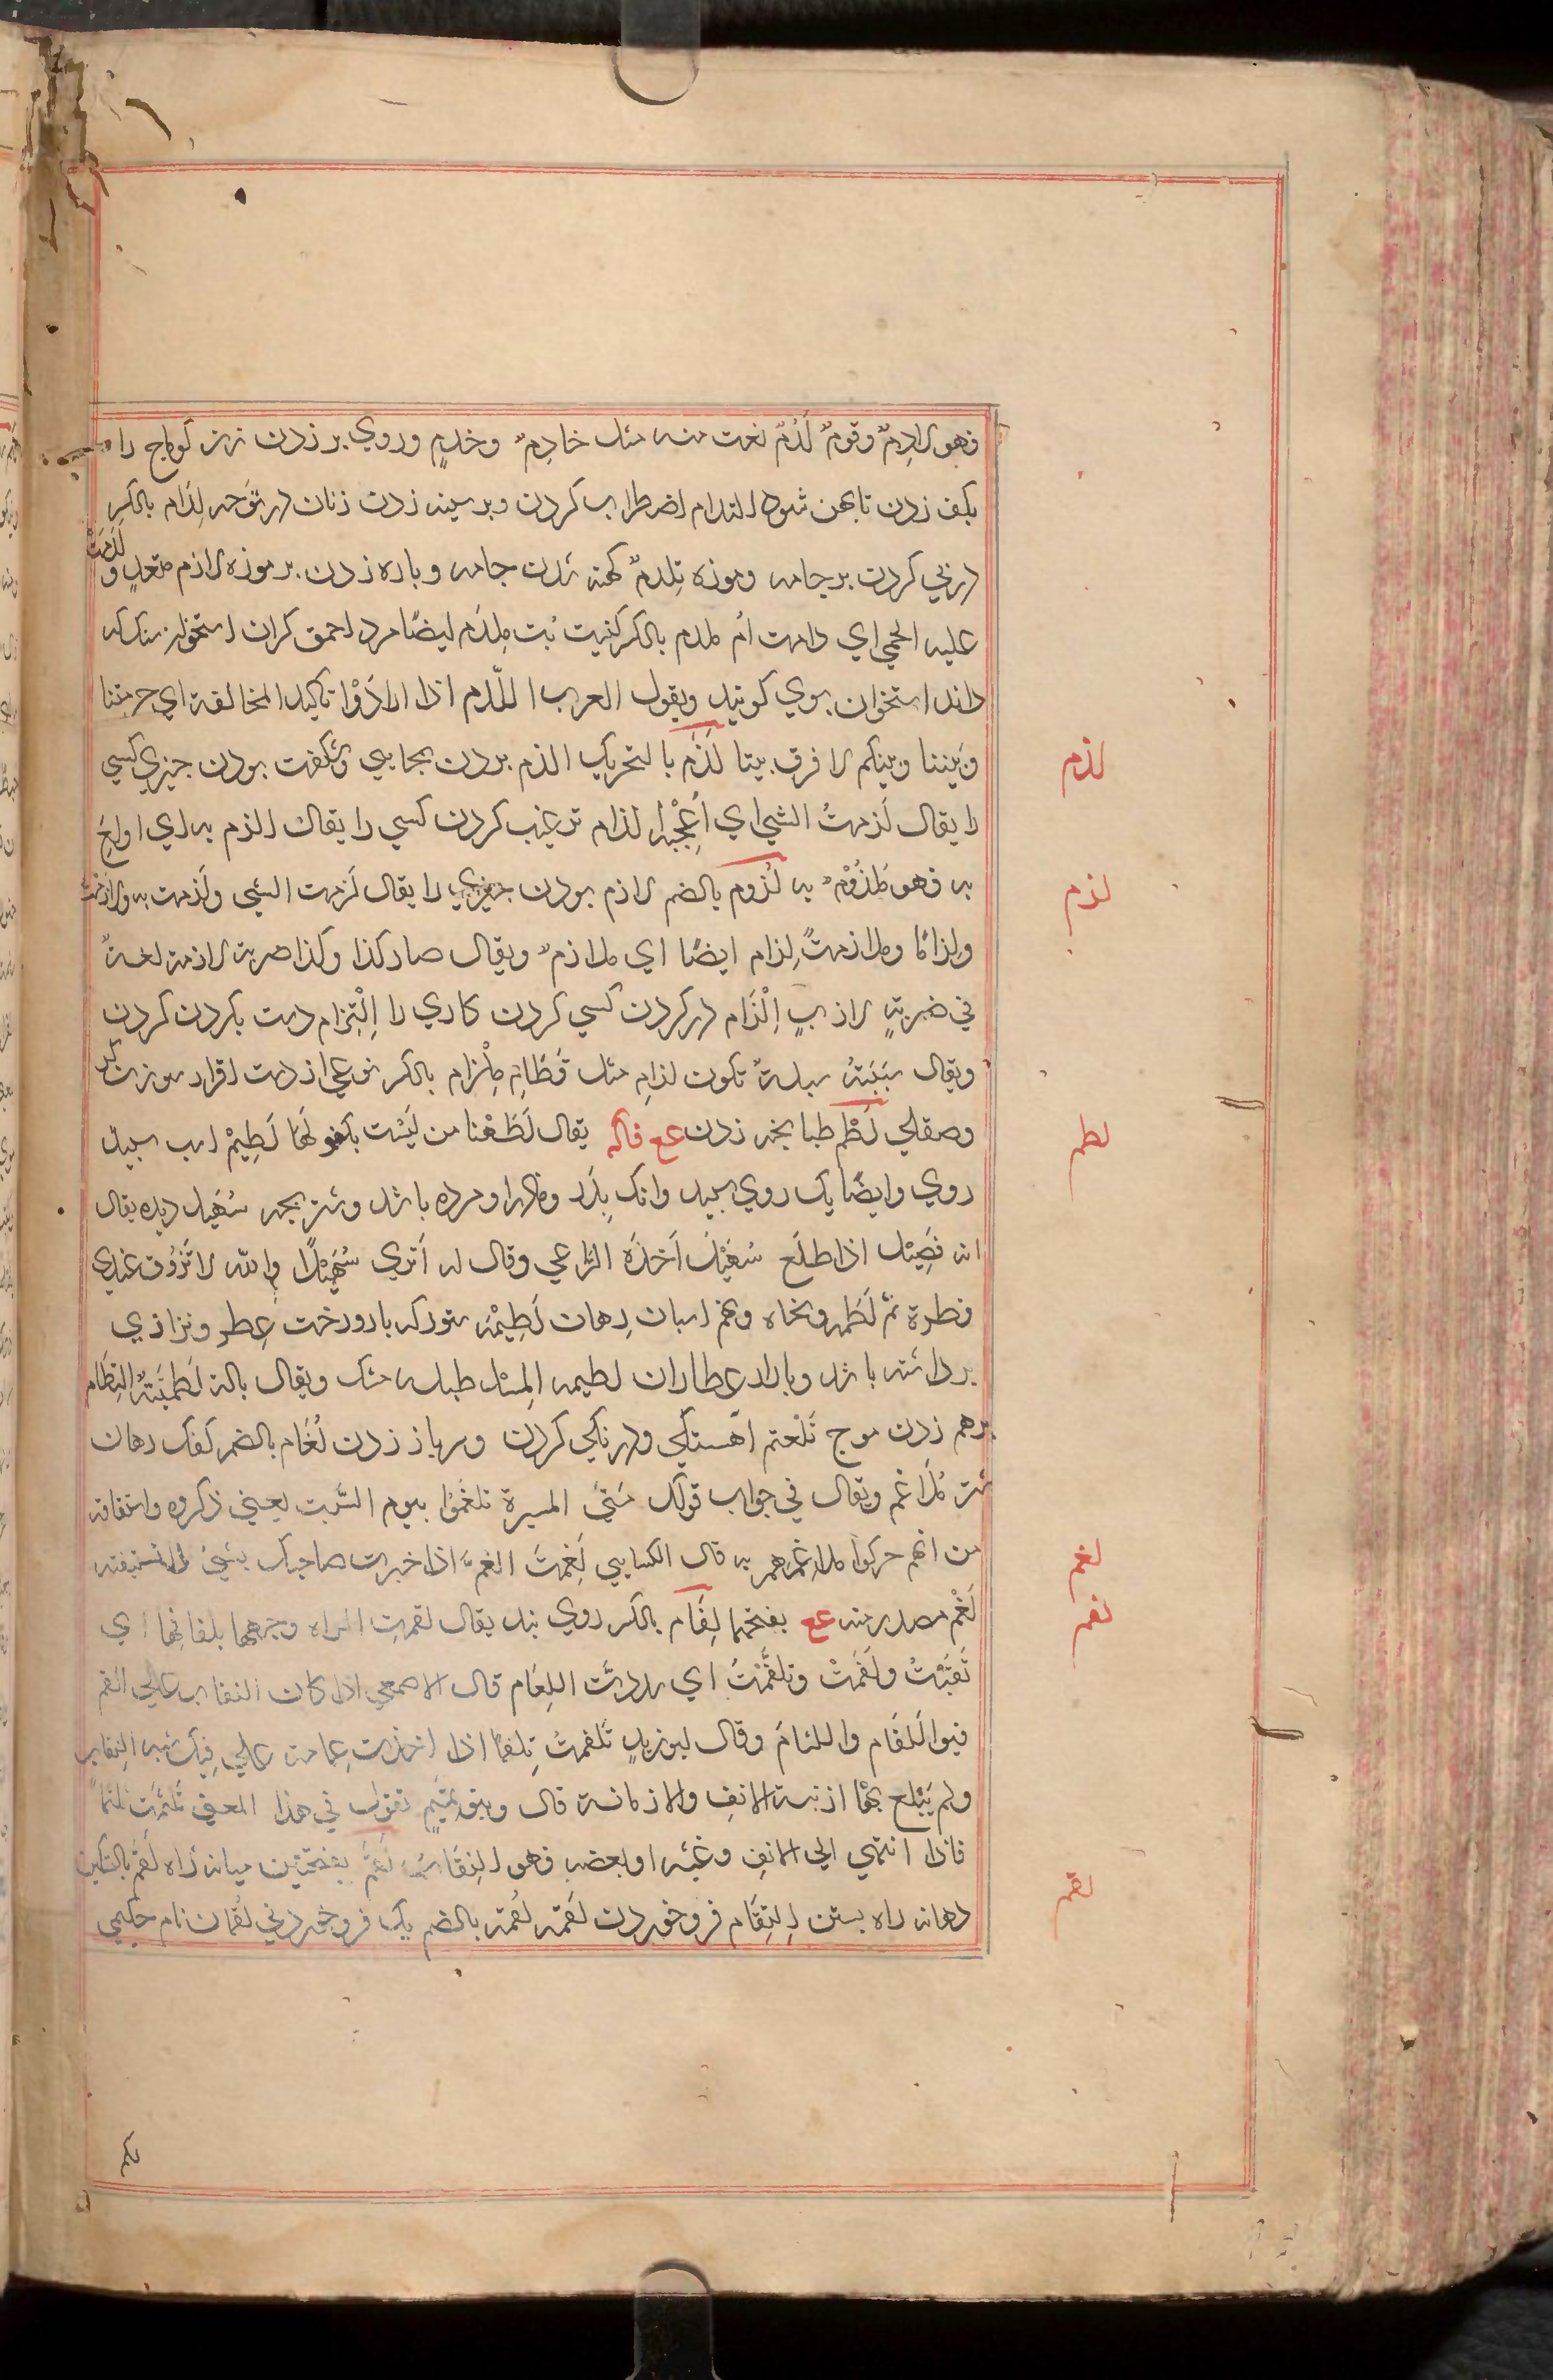 فهو لادِمٌ وقومٌ لَدَمٌ نعت منه مثل خادِمٌ وخدمٍ وروي بر زدن زن كوماج را
بكف زدن تا پهن شود التدام اضطراب كردن وبر سينه زدن زنان در نوحه لِدَام بالكسر
درپي كردن بر جامه وموزه تلدمٌ كهنه شدن جامه وباره زدن بر موزه لاذم متعدٍ و لدمت
عليه الحمي اي دامت اُم ملدم بالكسر كنيت تب مِلدَم ايضًا مرد احمق كران استخوان سنك كه
داند استخوان بوي كوبند ويقول العرب اللّدم اذا ارادَوْا تاكيد المخالفة اي حرمتنا
وبَيننا وبينكم لا فرق بيننا لَذَم بالتحريك الذم بردن بجايي وشكفت بودن چيزي كسي
را يقال لَذمتُ الشي اي اُعْجِبه لذام ترغيب كردن كسي را يقال الذم به اي اولِعَ
به فهو مَلذُوْمٌ به لُزوم بالضم لازم بودن چيزي را يقال لَزمت الشي ولَزمت به ولازمت
ولِزامًا وملازمةً لِزام ايضًا اي ملازمٌ ويقال صار كذا وكذا ضربة لازمة لغةٌ
في ضربةٍ لازبٍ اِلْزَام در كردن كسي كردن كاري را اِلْتِزام دست بكردن كردن
ويقال سَبَبتُه سبةً تكون لزامِ مثل قَطَامِ مِلْزام بالكسر نوعي از دست افزار موزه كر
وصقلي لَطْم طبانچه زدن عع فاكه يقال لَطَمْنا من لَيْسَت بكفو لهَا لَطِيمْ اسب سپيد
روي وايضًا يك روي سپيد وانك پدر ومادر او مرده باشد وشتر بچه سُهَيل ديده يقال
انه فَصِيْل اذا طلَع سُهَيْلٌ اَخذَه الرّاعي وقال له اَتري سُهَيْلاً والله لا تَذوُق عِندِي
قطرة ثمّ لَطَمه ونحاه ونهم اسبان رِهان لَطِيْمَه ستور كه بار ودرخت عِطر وبزازي
بر داشته باشد وبازار عطاران لطيمه اَلمِسْك طبله مشك ويقال بالة لَطَمِيّةٌ اِلتِطَام
برهم زدن موج تَلَعثم اهستكي ودرنكي كردن وسر باز زدن لُغَام بالضم كفك دهان
شتر مَلَاغم ويقال في جواب قولك مَتيَ المسيرة تلغَّموْا بيوم السَّبت يعني ذكروه واشتقاقه
من انهم حركوا ملاغمهم به قال الكسايي لَغِمتَ الغمَ اذا خبرت صاحبك بشيءٍ لا تستيقنه
لَغْم مصدر منه عع بفتحها لِفَام بالكسر روي بند يقال لفمت المراه وجهها بلفامِها اي
نَقبَّتْ ولَفَمتْ وتلفَّمتْ اي شددّت اللِفَام قال الاصمعي اذا كان النقاب علي الفم
فهو اَللفَام واللثامَ وقال ابو زيدٍ تَلفمتُ تَلفمًا اذا اخذت عِمامة علي فيك شبه النقاب
ولم يَبلغ بها ارنبة الانفِ ولا مارنه قال وبنو تميمٍ تقول في هذا المعني تَلثمت تلثمًا
فاذا انتهي الي الانفِ وغشيه او بعضه فهو النِقَاب لَقَم بفتحتين ميانه راه لَقْم بالتسكين
دهانه راه بستن اِلتِقَام فرو خوردن لَقمه لُقمه بالضم يك فرو خوردني لُقمان نام حكيمي
لذم
لزم
لطم
لغم
لفم
لقم